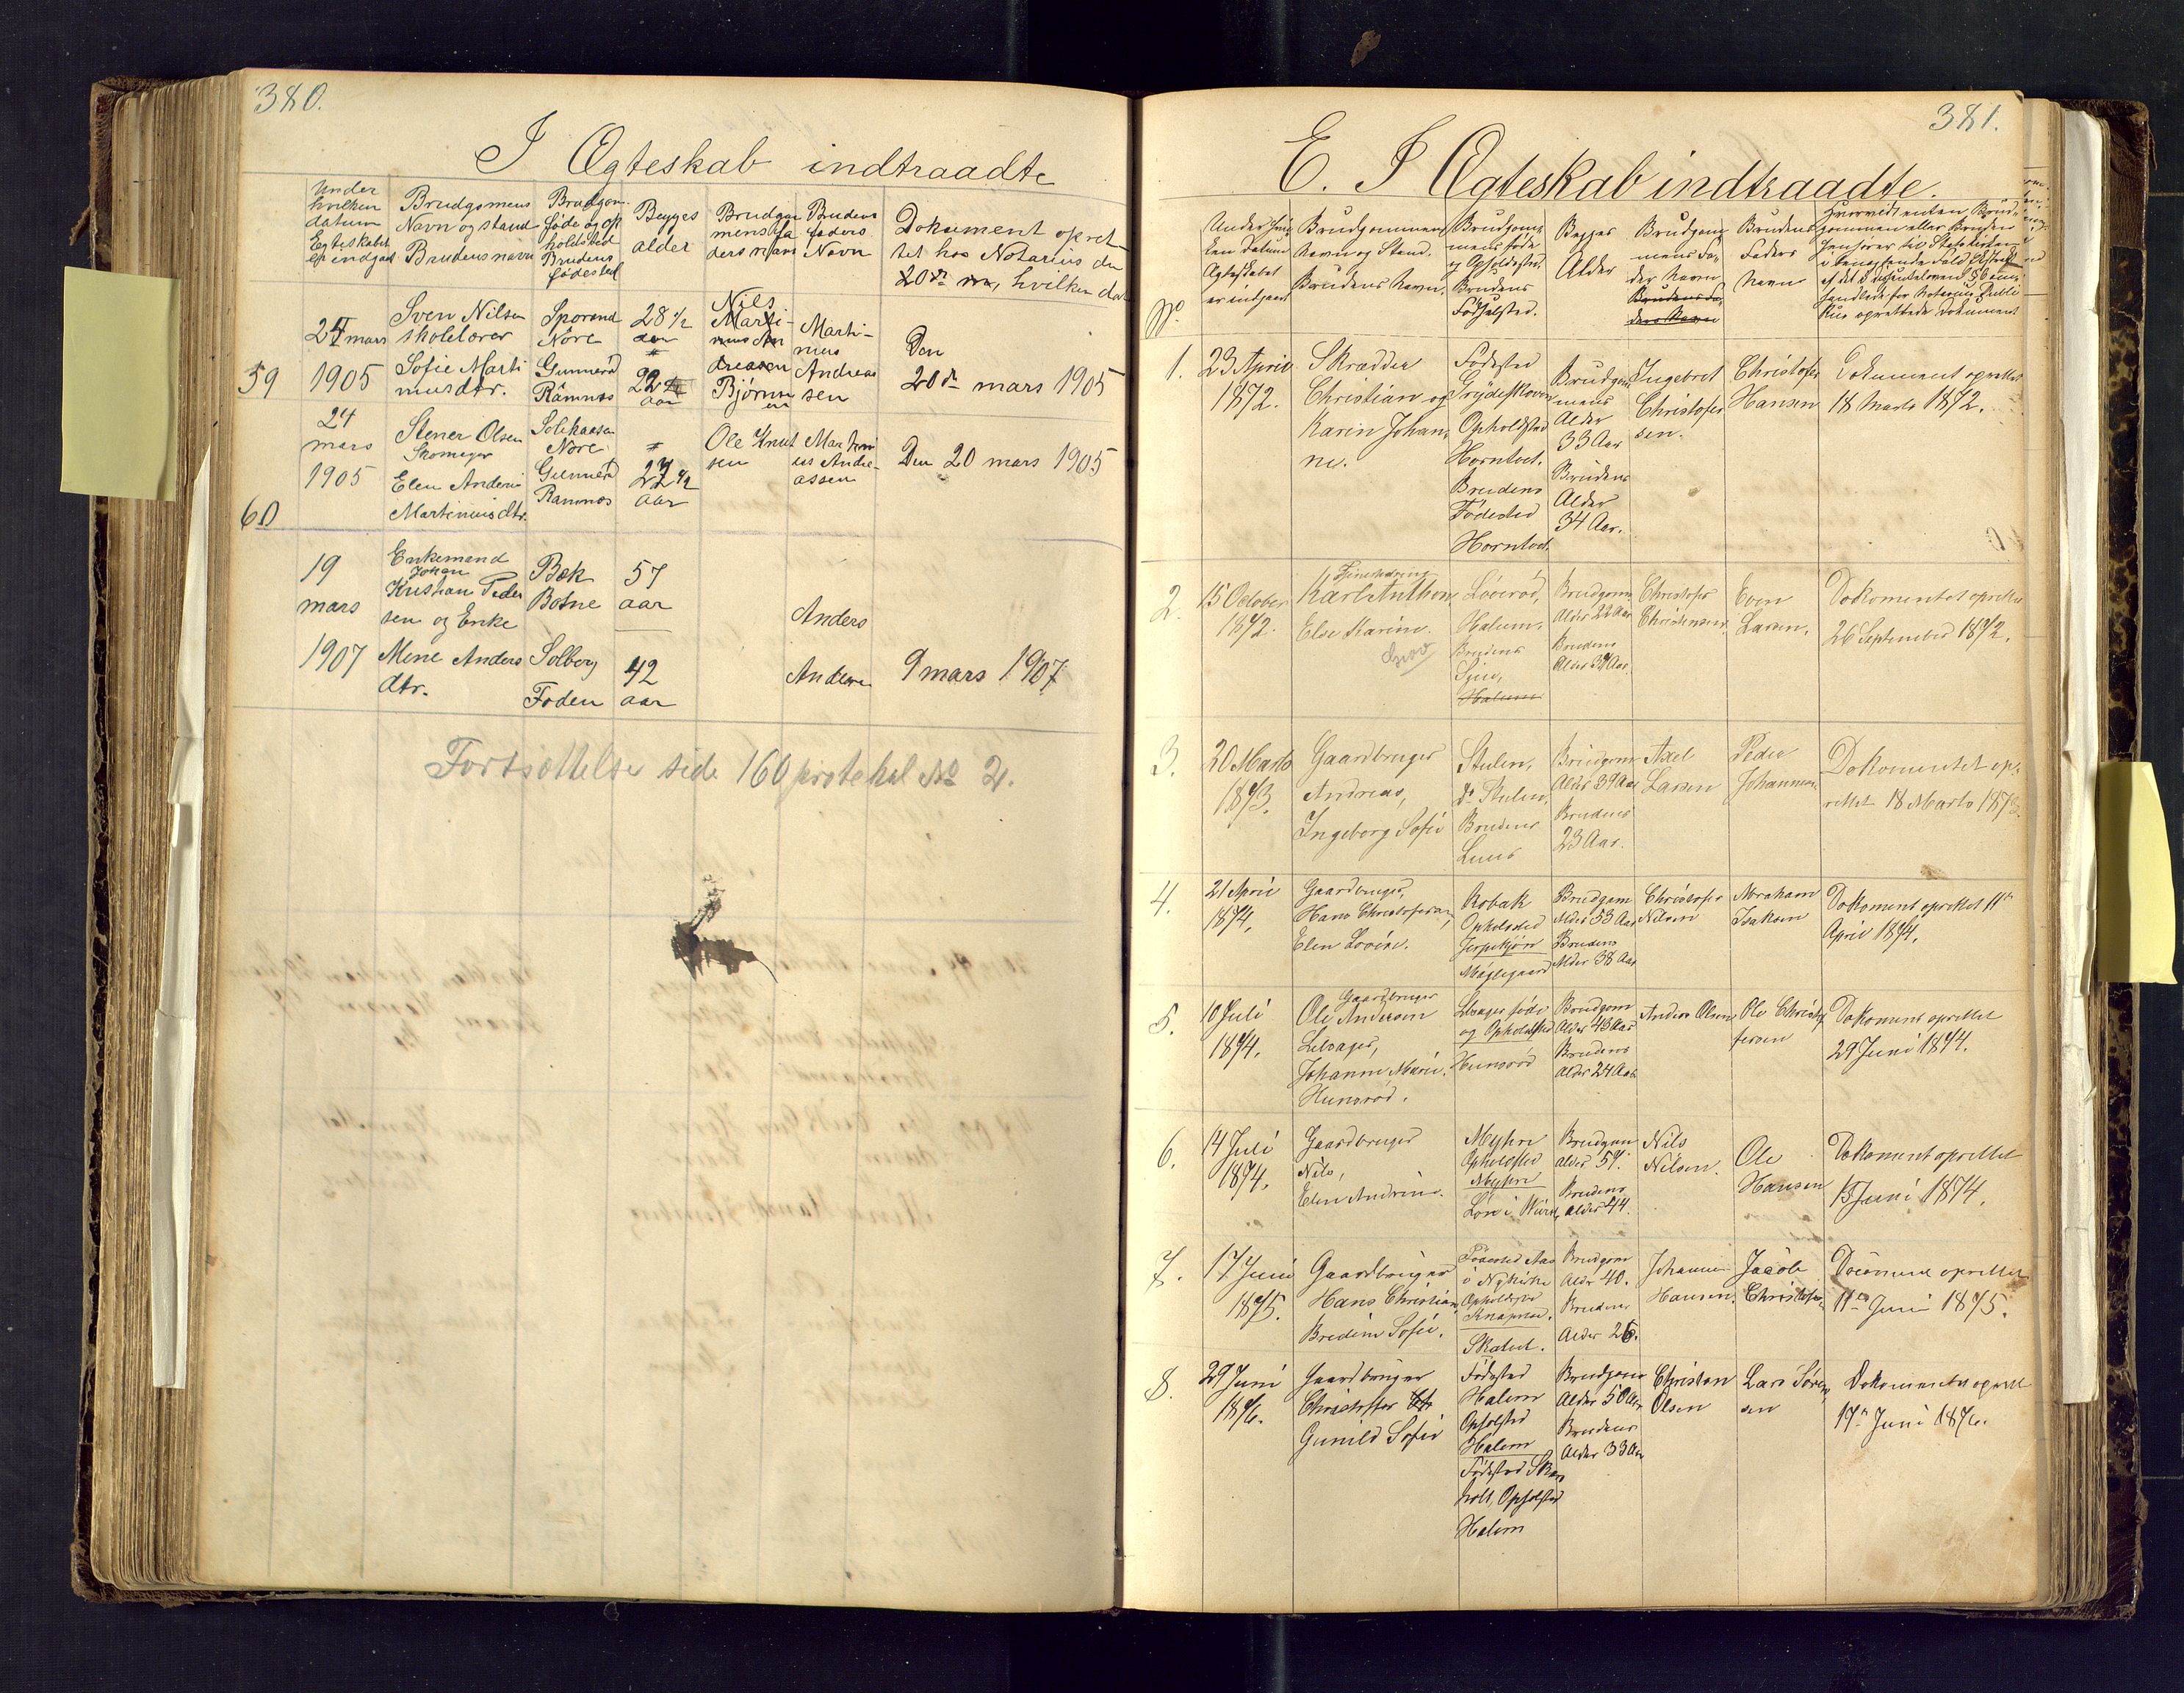 380.
I Ægteskab indtraadte
Under
hvilken
datum
Egteskabet
er indgaat
Brudgomens
Navn og stand
Brudens navn
Brudgom.
føde og op
holdsted
Brudens
fødested
Begges
alder
Brudgo
mens fa
ders navn
Brudens
faders
Navn
Dokument opret
tet hos Notarius den
hvilken da
59
24 mars
1905
Sven Nilsen
skolelærer
Sofie Marti
nusdtr.
Sporend
Nöre
Gunnerød
Ramnæs
28 1/2
aar
22
aar
Nils
Bjørnsen
Marti-
nus
Andreas
sen
Den
20de mars 1905
60
24
mars
1905
Stener Olsen
Skomager
Elen Andrine
Martinius dtr.
Nøre
Gunnerød
Ramnæs
aar
Ole Knut
sen
Martini
us Andre-
assen
Den 20 mars 1905
19
mars
1907
Enkemand
Johan
Kristian Peder
sen og Enke
Mene Anders
dtr.
Bæk
Botne
Solberg
Foden
57
aar
42
aar
Anders
Anders
9 mars 1907
Fortsættelse side 160 protokol No 2.
381.
E. I Ægteskab indtraadte.
No
Under hvil
ken Datum
Ægteskabet
er indgaaet
Brudgommens
Navn og Stand.
Brudens Navn.
Brudgoms
mens føde
og Opholdsted.
Brudens
Fødselsted.
Begges
Alder
Brudgom
mens Fa-
der Navn
Brudens Fa-
ders Navn
Brudens
Faders
Navn
Hvorvidt enten Brud-
gommen eller Bruden
henhører til Statskirken
1.
23 April
1872.
Skrædder
Christian og
Karin Johan-
ne.
Fødested
Grydeskoven
Opholdsted
Horntvet.
Brudens
Fødested
Horntvet.
Brudgom
mens
Alder
33 Aar
Brudens
Alder
34 Aar.
Ingebret
Christofer
sen.
Christofer
Hansen
Dokument oprettet
18 Marts 1872.
2.
15 October
1872.
Karl Anthon,
Else Karine.
Løverød,
Halum,
Brudens
Halum
Brudgom
Alder 22 Aar
Brudens
Alder
Christofer
Christensen
Even
Larsen.
Dokomentet oprettet
26 September 1872.
3.
20 Marts
1873.
Gaardbruger
Andreas,
Ingeborg Sofie
Stulen,
do Stulen,
Brudens
Brudgom
Alder 39 Aar
Brudens
23 Aar.
Axel
Larsen
Peder
Johannesen
Dokomentet op-
rettet 18 Marts 1873.
4.
21 April
1874.
Gaardbruger,
Hans Christofersen,
Elen Lovise.
Robak
Opholdsted
Jerpekjøn
Møglegaard
Brudgom
Alder 53 Aar
Brudens
Alder 38 Aar
Christofer
Nilsen
Abraham
Isaksen
Dokoment oprettet 11te
April 1874.
5.
10 Juli
1874.
Gaardbruger
Ole Andersen
Lilvager,
Johanne Marie.
Hunsrød.
Lilvager føde
og Opholdsted
Hunsrød
Brudgom
Alder 43 Aar
Brudens
Alder 24 Aar
Anders Olsen
Ole Christof
fersen
Dokoment oprettet
29 Juni 1874.
6.
14 Juli
1874.
Gaardbruger
Nils,
Elen Andrine.
Myhre
Opholdsted
Myhre
Brudgom
alder 57.
Brudens
alder 44.
Nils
Nilsen.
Ole
Hansen
Dokoment oprettet
15 Juni 1874.
7.
17 Juni
1875.
Gaardbruger
Hans Christian,
Bredine Sofie.
Fødested Aas
i Nykirke
Opholdsted
Skalvet.
Brudgom
Aldr 40.
Brudens
Alder 26.
Johannes
Hansen.
Jacob
Christofer
Document oprettet
11te Juni 1875.
8.
29 Juni
1876.
Gaardbruger
Christoffer
Gunild Sofie
Fødested
Halum
Opholsted
Halum
Fødsted Skou
holt, Opholsted
Halum
Brudgom
Alder 50 Aar
Brudens
Alder 33 Aar
Christen
Olsen
Lars Søren
sen
Dokomentet oprett
17de Juni 1876.